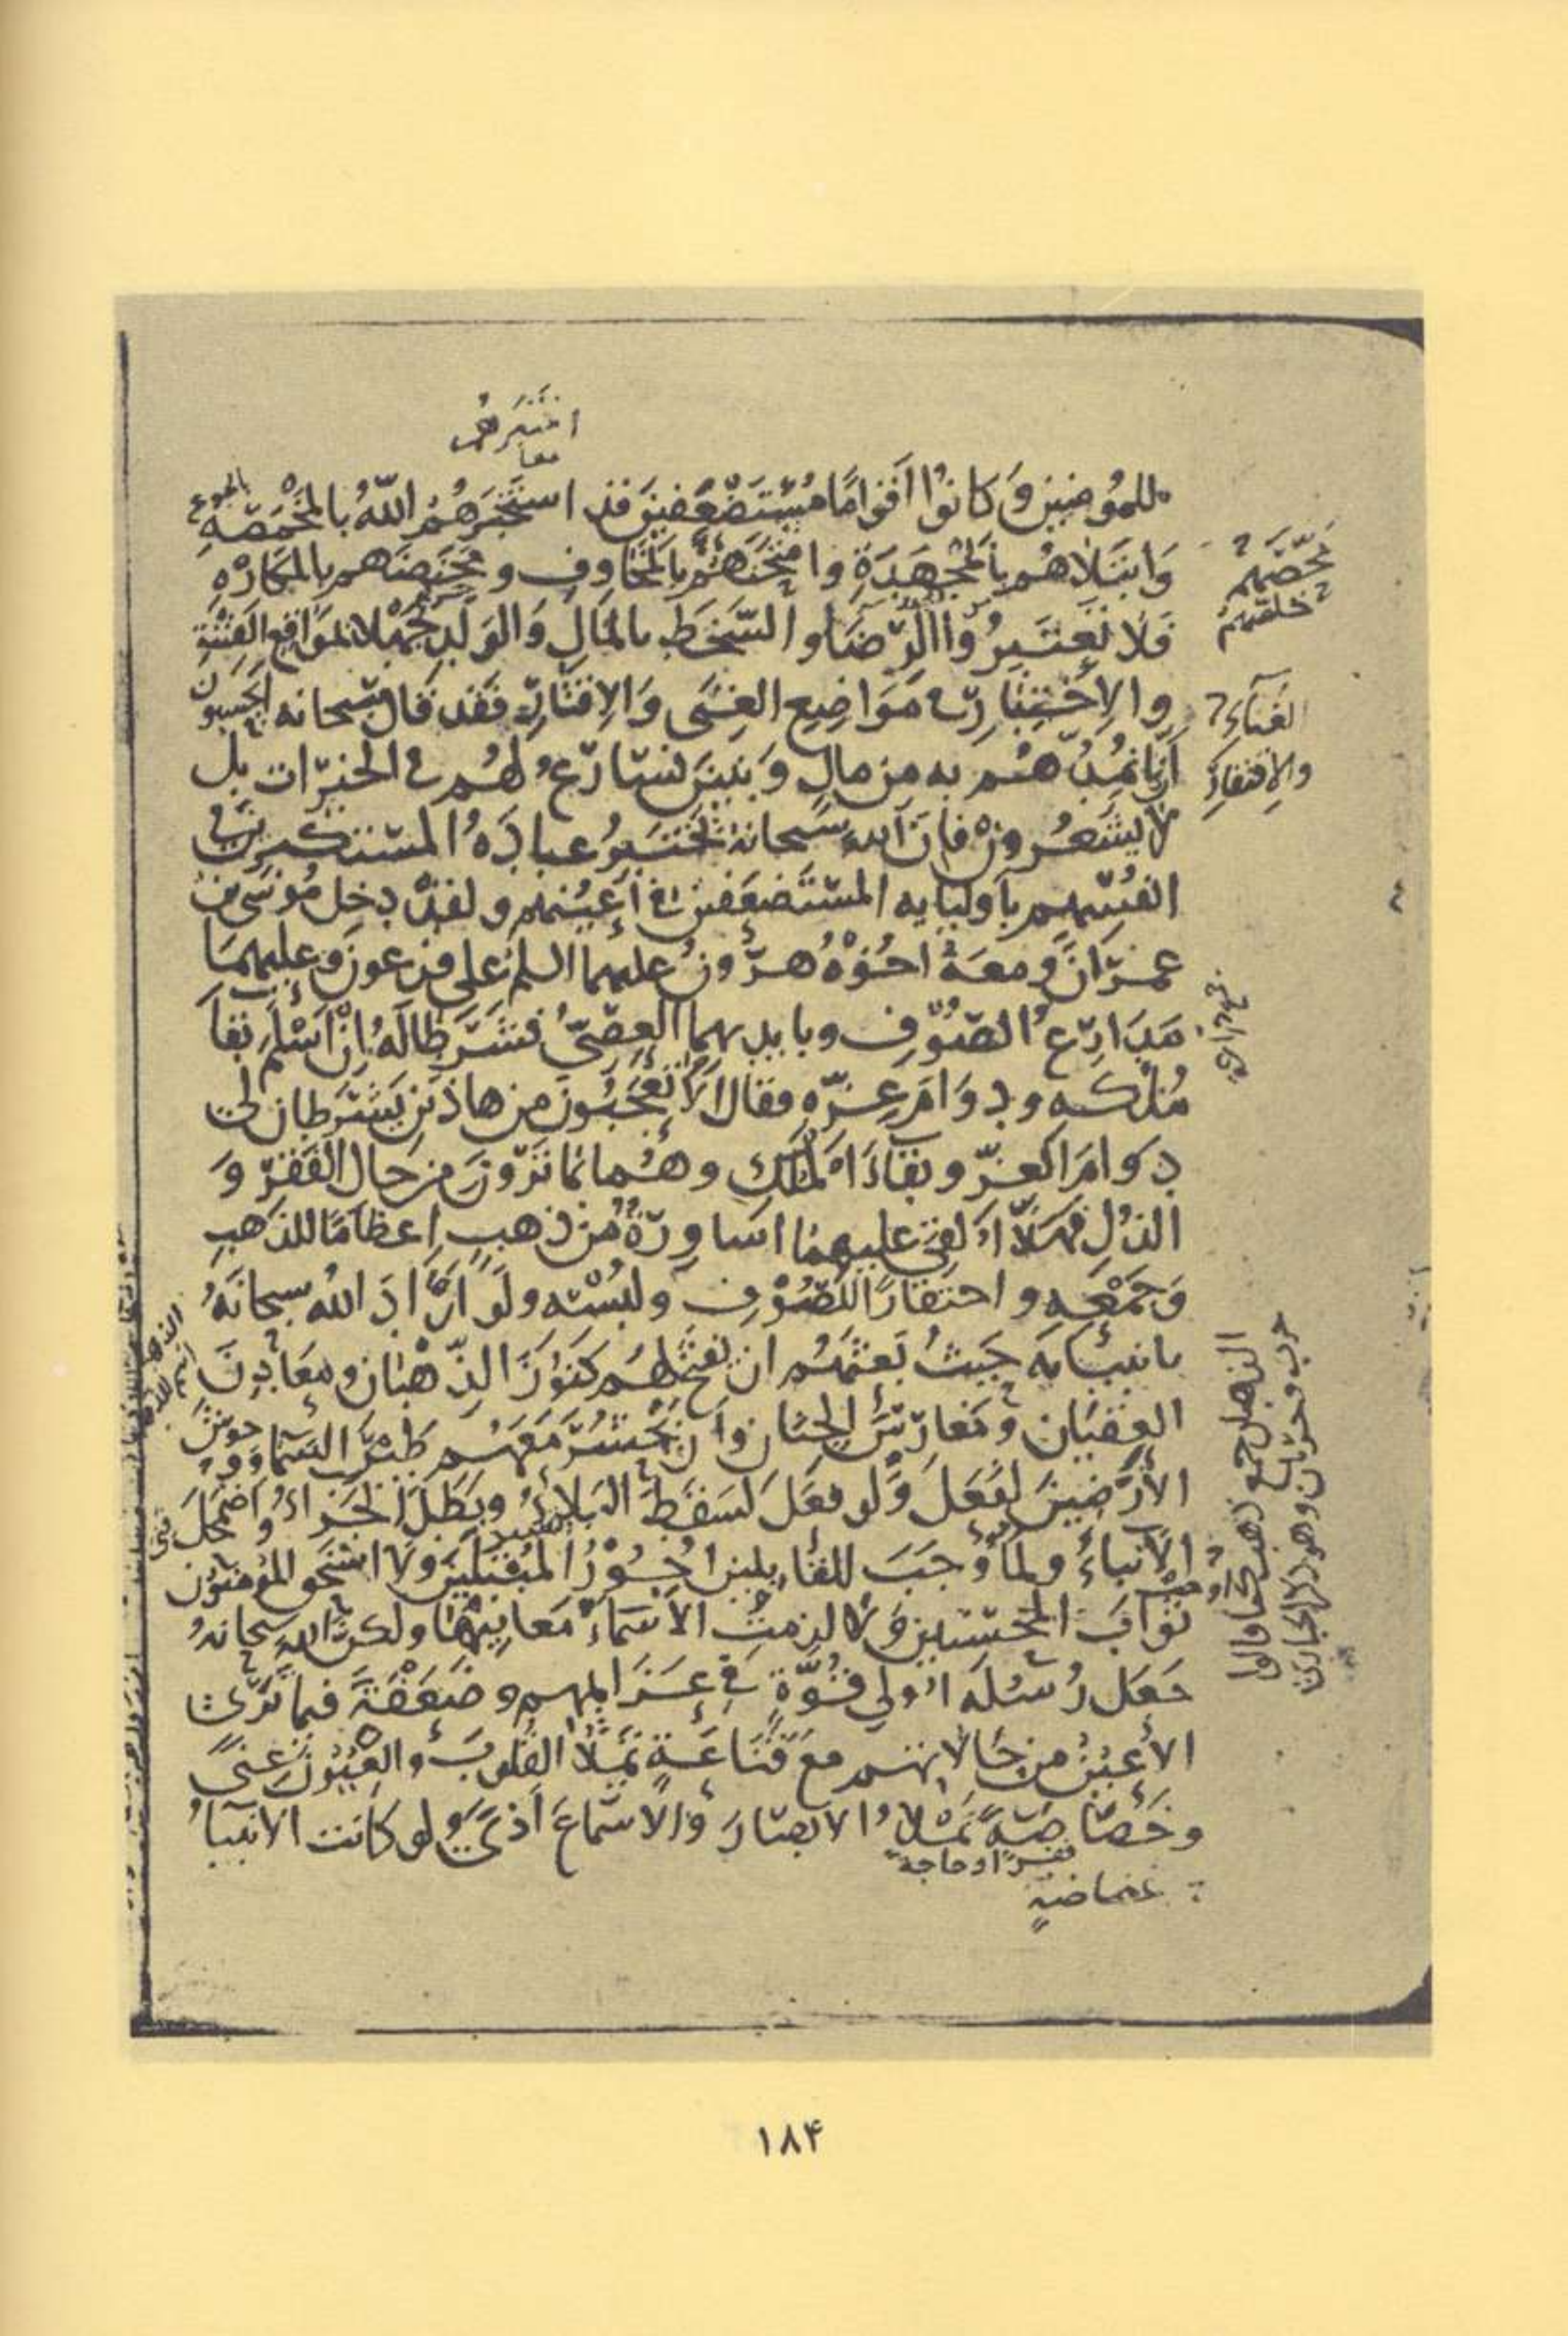 اختبرهم
معا
للمؤمنين وَكَانُوا أَقْوَامًا مُسْتَضْعَفِينَ قد اختبَرَهُمُ اللّهُ بالمَخْمَصَةِ
بالجوع
وَابْتَلاهُم بالمَجْهَدَةِ وامْتَحَنَهُمْ بالمَخَاوِفِ و مَخَضَهم بالمَكَارِهِ
محّصهم
خلّصهم
فَلا تَعْتَبِرُوا الرِّضَا والسَّخَطَ بالمَالِ وَالوَلَدِ جَهْلًا بمَوَاقِعِ الفِتْنَةِ
والاِخْتِبَارِ في مَوَاضِعِ الغِنَى وَالإِقْتَارِ فَقَد قَالَ سبحانه أيحسبون
الغناء
والافتقار
أَنَّما نُمِدُّهُم به من مالٍ وَبَنِينَ نُسَارِعُ لهُم في الخَيْرات بل
لا يَشْعُرونَ فَإنَّ اللهَ سُبحانَهُ يَخْتَبِرُ عِبادَهُ المُسْتَكبِرِينَ في
انفُسِهِم بأوليايه المُسْتَضْعَفِينَ في أَعْيُنِهِم ولقَدْ دخل مُوسَى بن
عِمْرَانَ ومعَهُ اخُوْهُ هرُونُ عليهما السلم على فرعونَ وعليهمَا
مَدَارِعُ الصُّوْفِ وبايديهما العِصِيُّ فشَرَطَا لَهُ إِنْ أَسْلَمَ بَقَآ
مُلْكه ودوَامَ عِزِّهِ فقال أَلَا تَعْجَبُونَ من هاذَيْنِ يَشْرِطان لي
دوَامَ العِزِّ وبَقَاءَ المُلْكِ وهُما بما تَرَوْنَ من حالِ الفَقْرِ وَ
الذُّلِ فهَلَّا أُلْقِيَ عليهِمَا اسَاوِرَةٌ من ذهبٍ إعظامًا للذهبِ
وَجَمْعِهِ واحتِقَارًا للصُّوْفِ ولُبْسِه ولو أَرَادَ اللهُ سبحانَهُ
بانبيايه حَيثُ بَعَثَهُم ان يَفْتَحَ لهُم كُنُوْزَ الذِّهْبَان ومعَادِنَ
العِقْيَان ومَغَارِسَ الجِنَان وأن يَحْشُرَ مَعَهُم طَيْرَ السَّمَآءِ ووُحُوشَ
الأَرَضِينَ لَفَعَلَ وَلو فعَلَ لَسَقَطَ البَلاءُ وبَطَلَ الجَزَاءُ واضْمَحَلَّ
الأنباءُ ولما وَجَبَ للقابلين اجُوْرُ المُبْتَلَيْنَ ولا استحَقَ المؤمنون
ثوابَ المحسنينَ ولا لزِمتِ الأسْمَاءُ مَعَانِيهَا ولكنَّ اللهَ سبحانهُ
جَعَل رُسُلَه أُولي قُوَّةٍ في عَزَايمِهِم وضَعَفَةً فيما تَرَى
الأعيُنُ من حَالاتِهم معَ قَنَاعَةٍ تَمْلَأُ القلوبَ والعُيُونَ غِنًى
وخَصَاصَةٍ تَمْلَأُ الابصَارَ وَالأسْماعَ أَذًى ولو كَانت الانبيآءُ
فقرٍ او حاجة
غضاضةٍ
الذهبان جمع ذهب كما قالوا
خرب وخربان وهو ذكر الحبارى
۱۸۴